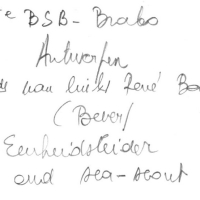 e BSB - Brabo
Antwerpen
van links René Ba
(Bever)
Eenheidsleider
oud sea-scout